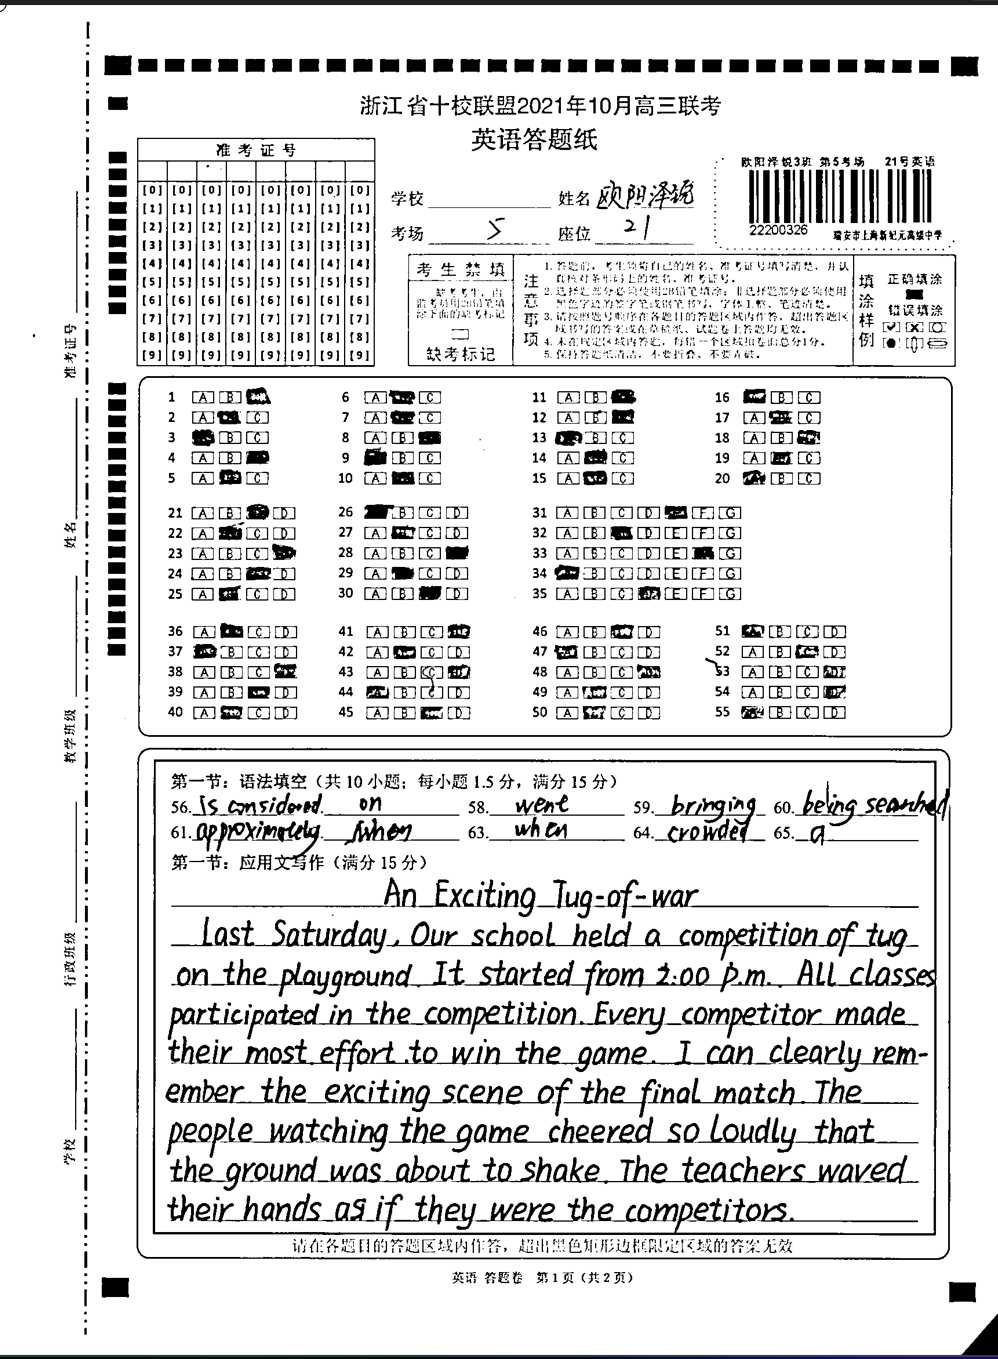 浙江省十校联盟2021年10月高三联考
英语答题纸
准考证号
[0] [0] [0] [0] [0] [0] [0] [0]
[1] [1] [1] [1] [1] [1] [1] [1]
[2] [2] [2] [2] [2] [2] [2] [2]
[3] [3] [3] [3] [3] [3] [3] [3]
[4] [4] [4] [4] [4] [4] [4] [4]
[5] [5] [5] [5] [5] [5] [5] [5]
[6] [6] [6] [6] [6] [6] [6] [6]
[7] [7] [7] [7] [7] [7] [7] [7]
[8] [8] [8] [8] [8] [8] [8] [8]
[9] [9] [9] [9] [9] [9] [9] [9]
学校 姓名 欧阳泽锐
考场 5 座位 21
欧阳泽锐3班 第5考场 21号英语
22200326 瑞安市上海新纪元高级中学
考生禁填
缺考考生，由
监考员用2B铅笔填
涂下面的缺考标记
缺考标记
注意事项
1. 答题前，考生须将自己的姓名、准考证号填写清楚，并认
真核对条形码上的姓名、准考证号。
2. 选择题部分必须使用2B铅笔填涂；非选择题部分必须使用
黑色字迹的签字笔或钢笔书写，字体工整、笔迹清楚。
3. 请按照题号顺序在各题目的答题区域内作答，超出答题区
域书写的答案或在草稿纸、试题卷上答题均无效。
4. 未在规定区域内答题，每错一个区域扣卷面总分1分。
5. 保持答题纸清洁，不要折叠、不要弄破。
填涂样例
正确填涂
错误填涂
1 A B
2 A C
3 B C
4 A B
5 A C
6 A C
7 A C
8 A B
9 B C
10 A C
11 A B
12 A B
13 B C
14 A C
15 A C
16 B C
17 A C
18 A B
19 A C
20 B C
21 A B D
22 A C D
23 A B C
24 A B D
25 A C D
26 B C D
27 A C D
28 A B C
29 A C D
30 A B D
31 A B C D F G
32 A B D E F G
33 A B C D E G
34 B C D E F G
35 A B C E F G
36 A C D
37 B C D
38 A B C
39 A B D
40 A C D
41 A B C
42 A C D
43 A B C
44 B C D
45 A B D
46 A B D
47 B C D
48 A B C
49 A C D
50 A C D
51 B C D
52 A B D
53 A B C
54 A B C
55 B C D
第一节：语法填空（共 10 小题；每小题 1.5 分，满分 15 分）
56. is considered. on 58. went 59. bringing 60. being searched
61. approximately. when 63. when 64. crowded 65. a
第一节：应用文写作（满分 15 分）
An Exciting Tug-of-war
Last Saturday, Our school held a competition of tug
on the playground. It started from 2:00 p.m.. All classes
participated in the competition. Every competitor made
their most effort to win the game. I can clearly rem-
ember the exciting scene of the final match. The
people watching the game cheered so loudly that
the ground was about to shake. The teachers waved
their hands as if they were the competitors.
请在各题目的答题区域内作答，超出黑色矩形边框限定区域的答案无效
英语 答题卷 第1页（共2页）
准考证号
姓名
教学班级
行政班级
学校